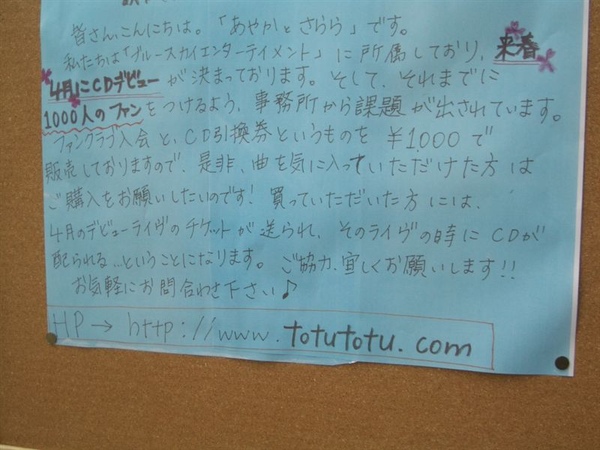 皆さん、こんにちは。「あやかとさらら」です。
私たちは「ブルースカイエンターテイメント」に所属しており、来春
4月にCDデビューが決まっております。そして、それまでに
1000人のファンをつけるよう、事務所から課題が出されています。
ファンクラブ入会と、CD引換券というものを¥1000で
販売しておりますので、是非、曲を気に入っていただけた方は
ご購入をお願いしたいのです!買っていただいた方には、
4月のデビューライヴのチケットが送られ、そのライヴの時にCDが
配られる…ということになります。ご協力、宜しくお願いします!!
お気軽にお問合わせ下さい♪
HP→http://www.totutotu.com